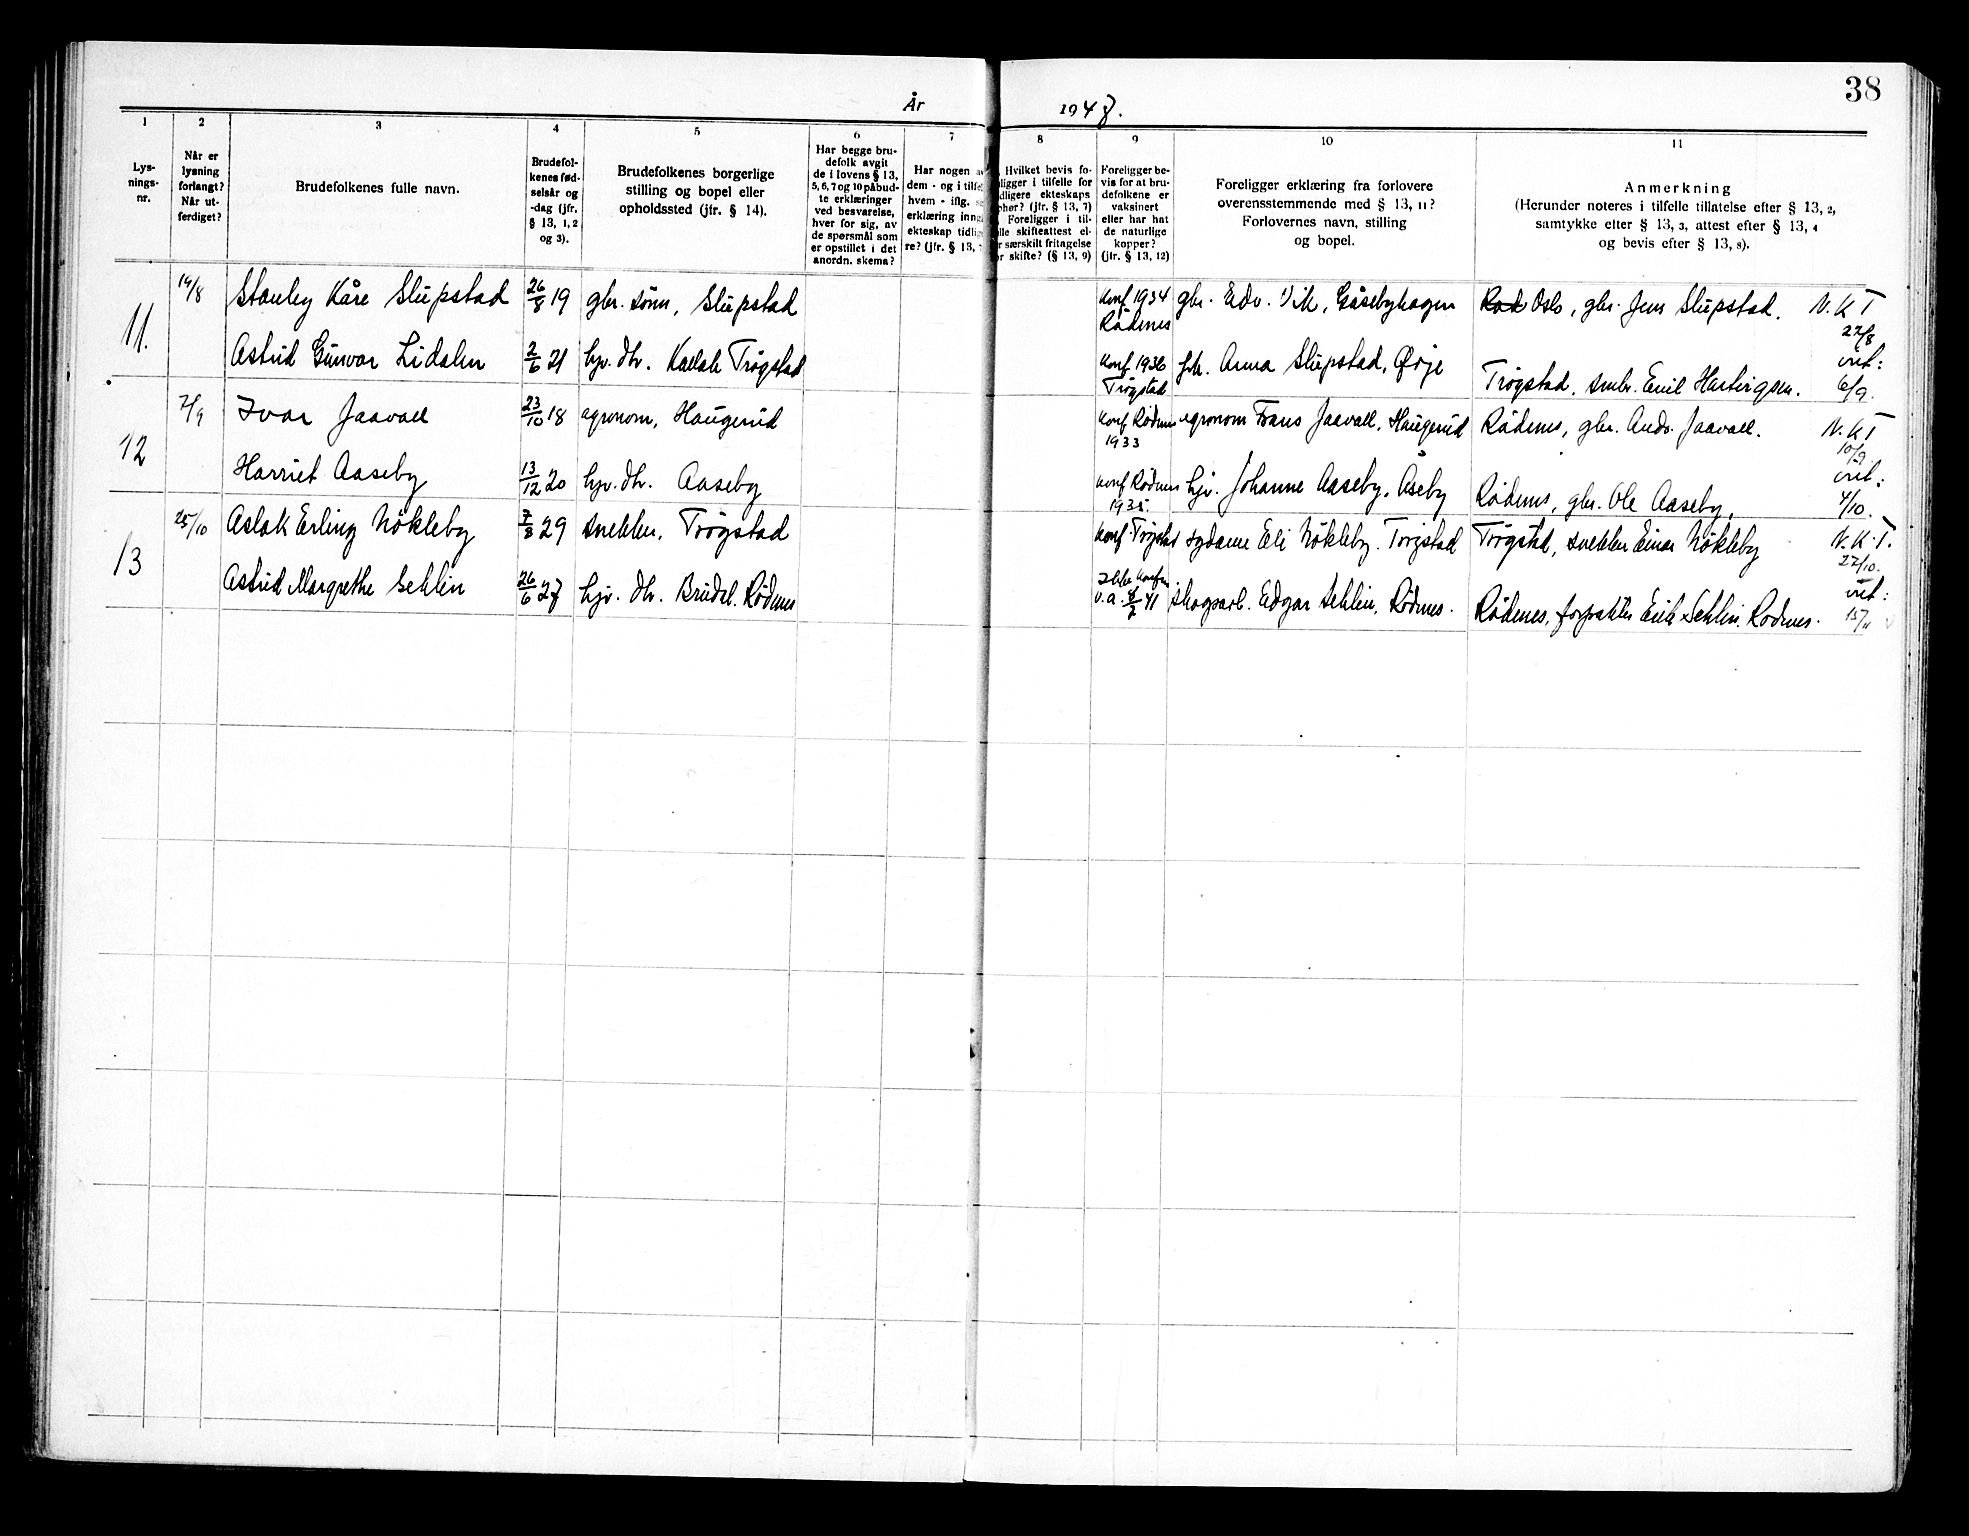 38
År 1948.
1
2
3
4
5
6
7
8
9
10
11
Lys-
nings-
nr.
Når er
lysning
forlangt?
Når ut-
ferdiget?
Brudefolkenes fulle navn.
Brudefol-
kenes fød-
selsår og
-dag (jfr.
§ 13, 1, 2
og 3).
Brudefolkenes borgerlige
stilling og bopel eller
opholdssted (jfr. § 14).
Har begge bru-
defolk avgit
de i lovens § 13,
5, 6, 7 og 10 påbud-
te erklæringer
ved besvarelse,
hver for sig, av
de spørsmål som
er opstillet i det
anordn. skema?
Har nogen a
dem - og i tilfe
hvem - iflg. s
erklæring inng
ekteskap tidlig
re? (jfr. § 13,
Hvilket bevis fo-
ligger i tilfelle for
dligere ekteskaps
phør? (jfr. § 13, 7)
Foreligger i til-
lle skifteattest el-
r særskilt fritagelse
or skifte? (§ 13, 9)
Foreligger be-
vis for at bru-
defolkene er
vaksinert
eller har hat
de naturlige
kopper?
(jfr. § 13, 12)
Foreligger erklæring fra forlovere
overensstemmende med § 13, 11?
Forlovernes navn, stilling
og bopel.
Anmerkning
(Herunder noteres i tilfelle tillatelse efter § 13, 2,
samtykke efter § 13, 3, attest efter § 13, 4
og bevis efter § 13, 8).
11.
19/8
Stanley Kåre Slupstad
26/8 19
gbr. sønn, Slupstad
konf 1934
Rødenes
gbr. Edv. Vik, Gåsebyhagen
Oslo, gbr. Jens Slupstad.
N. K T
27/8
Astrid Gunvor Lidalen
2/6 21
hjv. dtr. Trøgstad
konf 1936
Trøgstad
frk. Anna Slupstad, Ørje
Trøgstad, smbr. Emil Hartvigsen.
vit:
6/9.
12
7/9
Ivar Jaavall
23/10 18
agronom, Haugerud
konf Rødenes
1933
agronom Frans Jaavall, Haugerud
Rødenes, gbr. Andr. Jaavall.
N. K T
10/9
Harriet Aaseby
13/12 20
hjv. dtr. Aaseby
konf Rødenes
1935.
hjv. Johanne Aaseby, Åseby
Rødenes, gbr. Ole Aaseby.
vit:
4/10.
13
25/10
Aslak Erling Nökleby
7/8 29
snekker, Trøgstad
konf. Trøgstad
sydame Eli Nökleby. Trøgstad
Trøgstad, snekker Einar Nökleby
N. K. T.
27/10.
Astrid Margrethe Sehlin
26/6 27
hjv. dtr. Brudel. Rødenes
Ikke konfm.
v.a. 4/2 41
skogsarb. Edgar Sehlin, Rødenes.
Rødenes, forpakter Erik Sehlin. Rødenes.
vit:
15/11